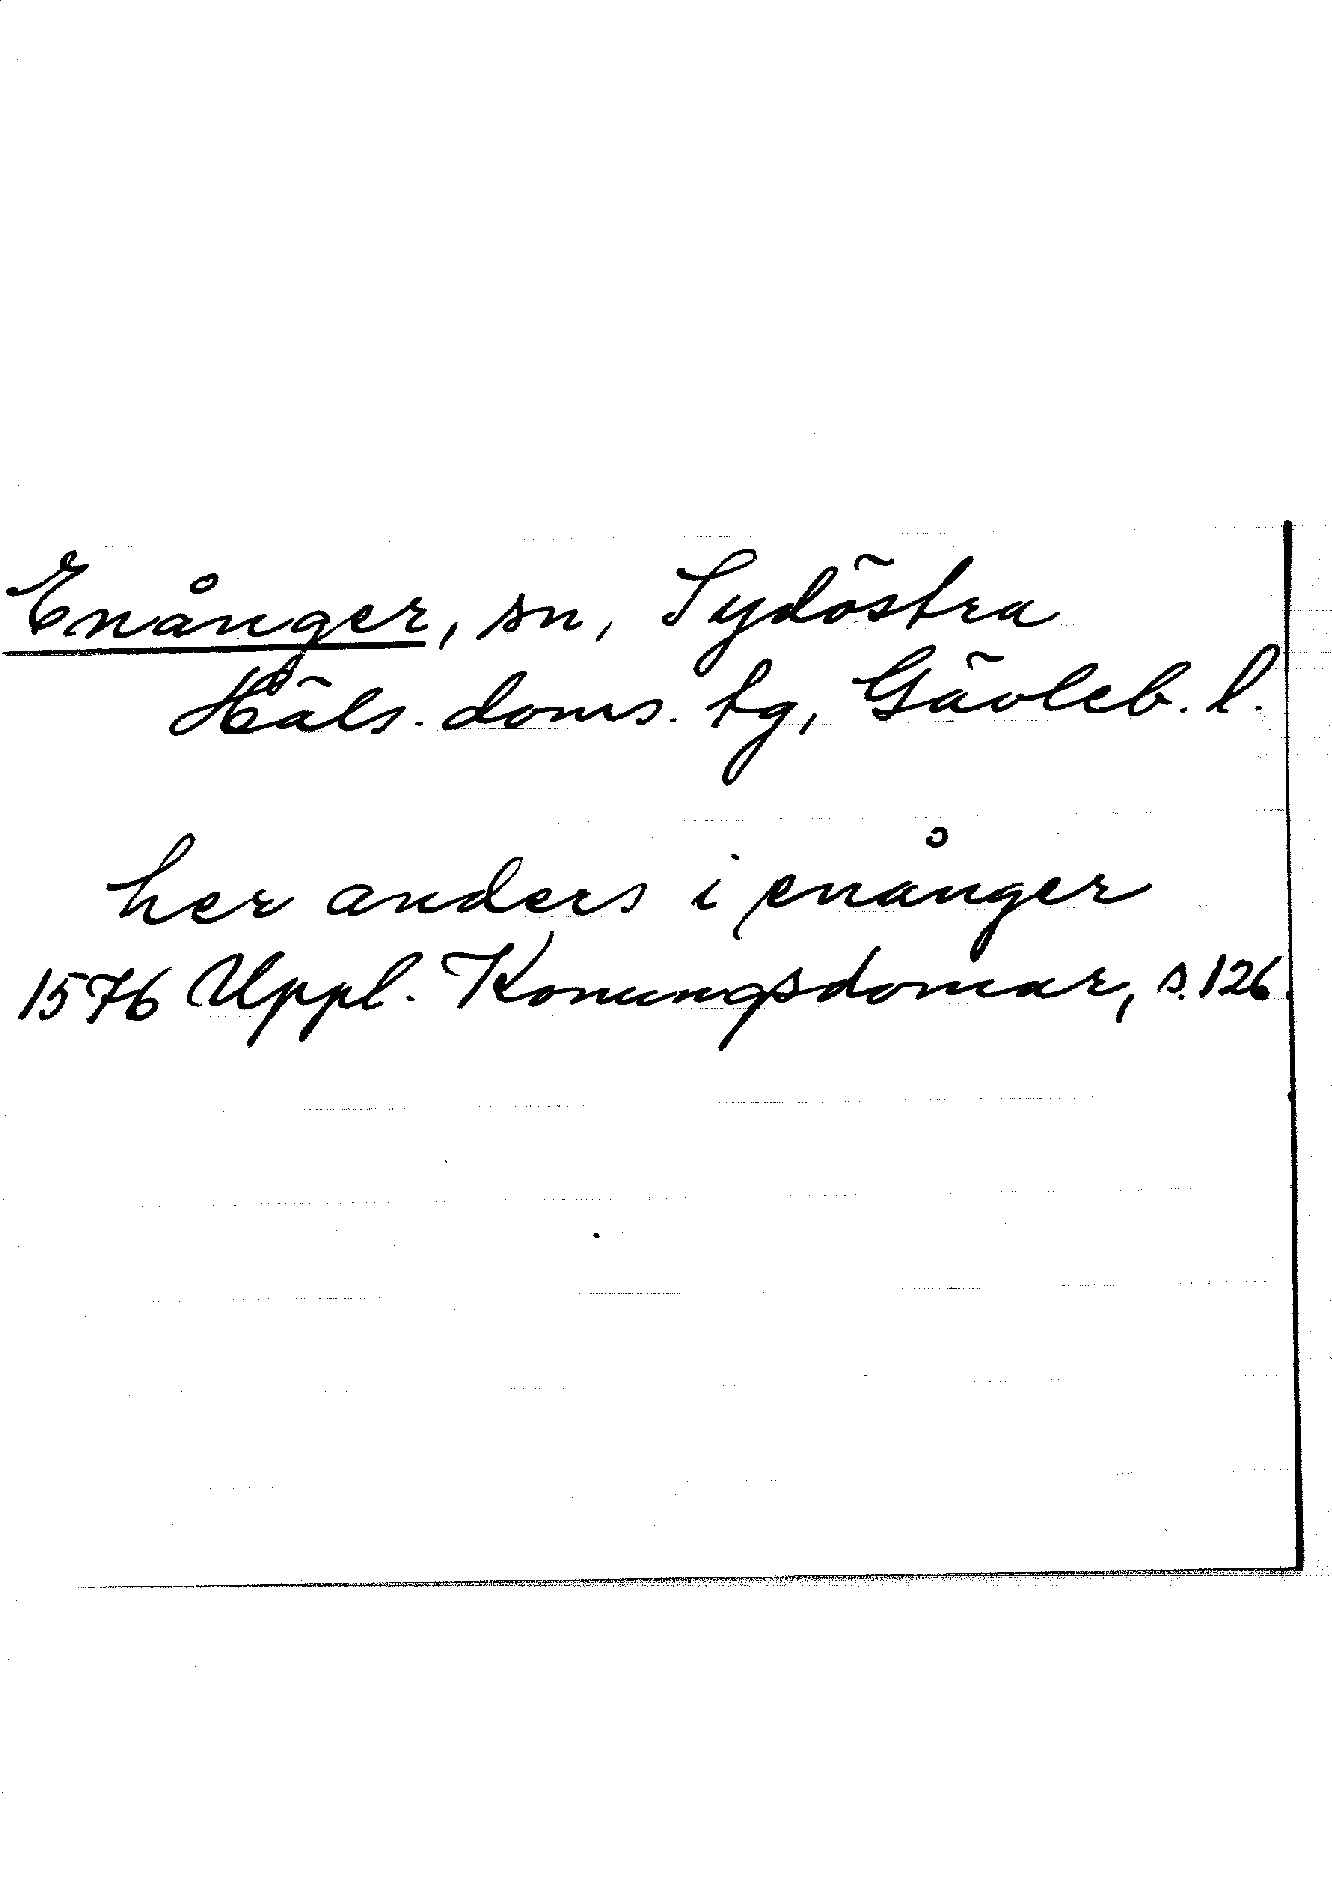 Enånger, sn, Sydöstra
Häls. doms. tg, Gävleb. l.
her anders i enånger
1576 Uppl. Konungsdomar, s. 126.